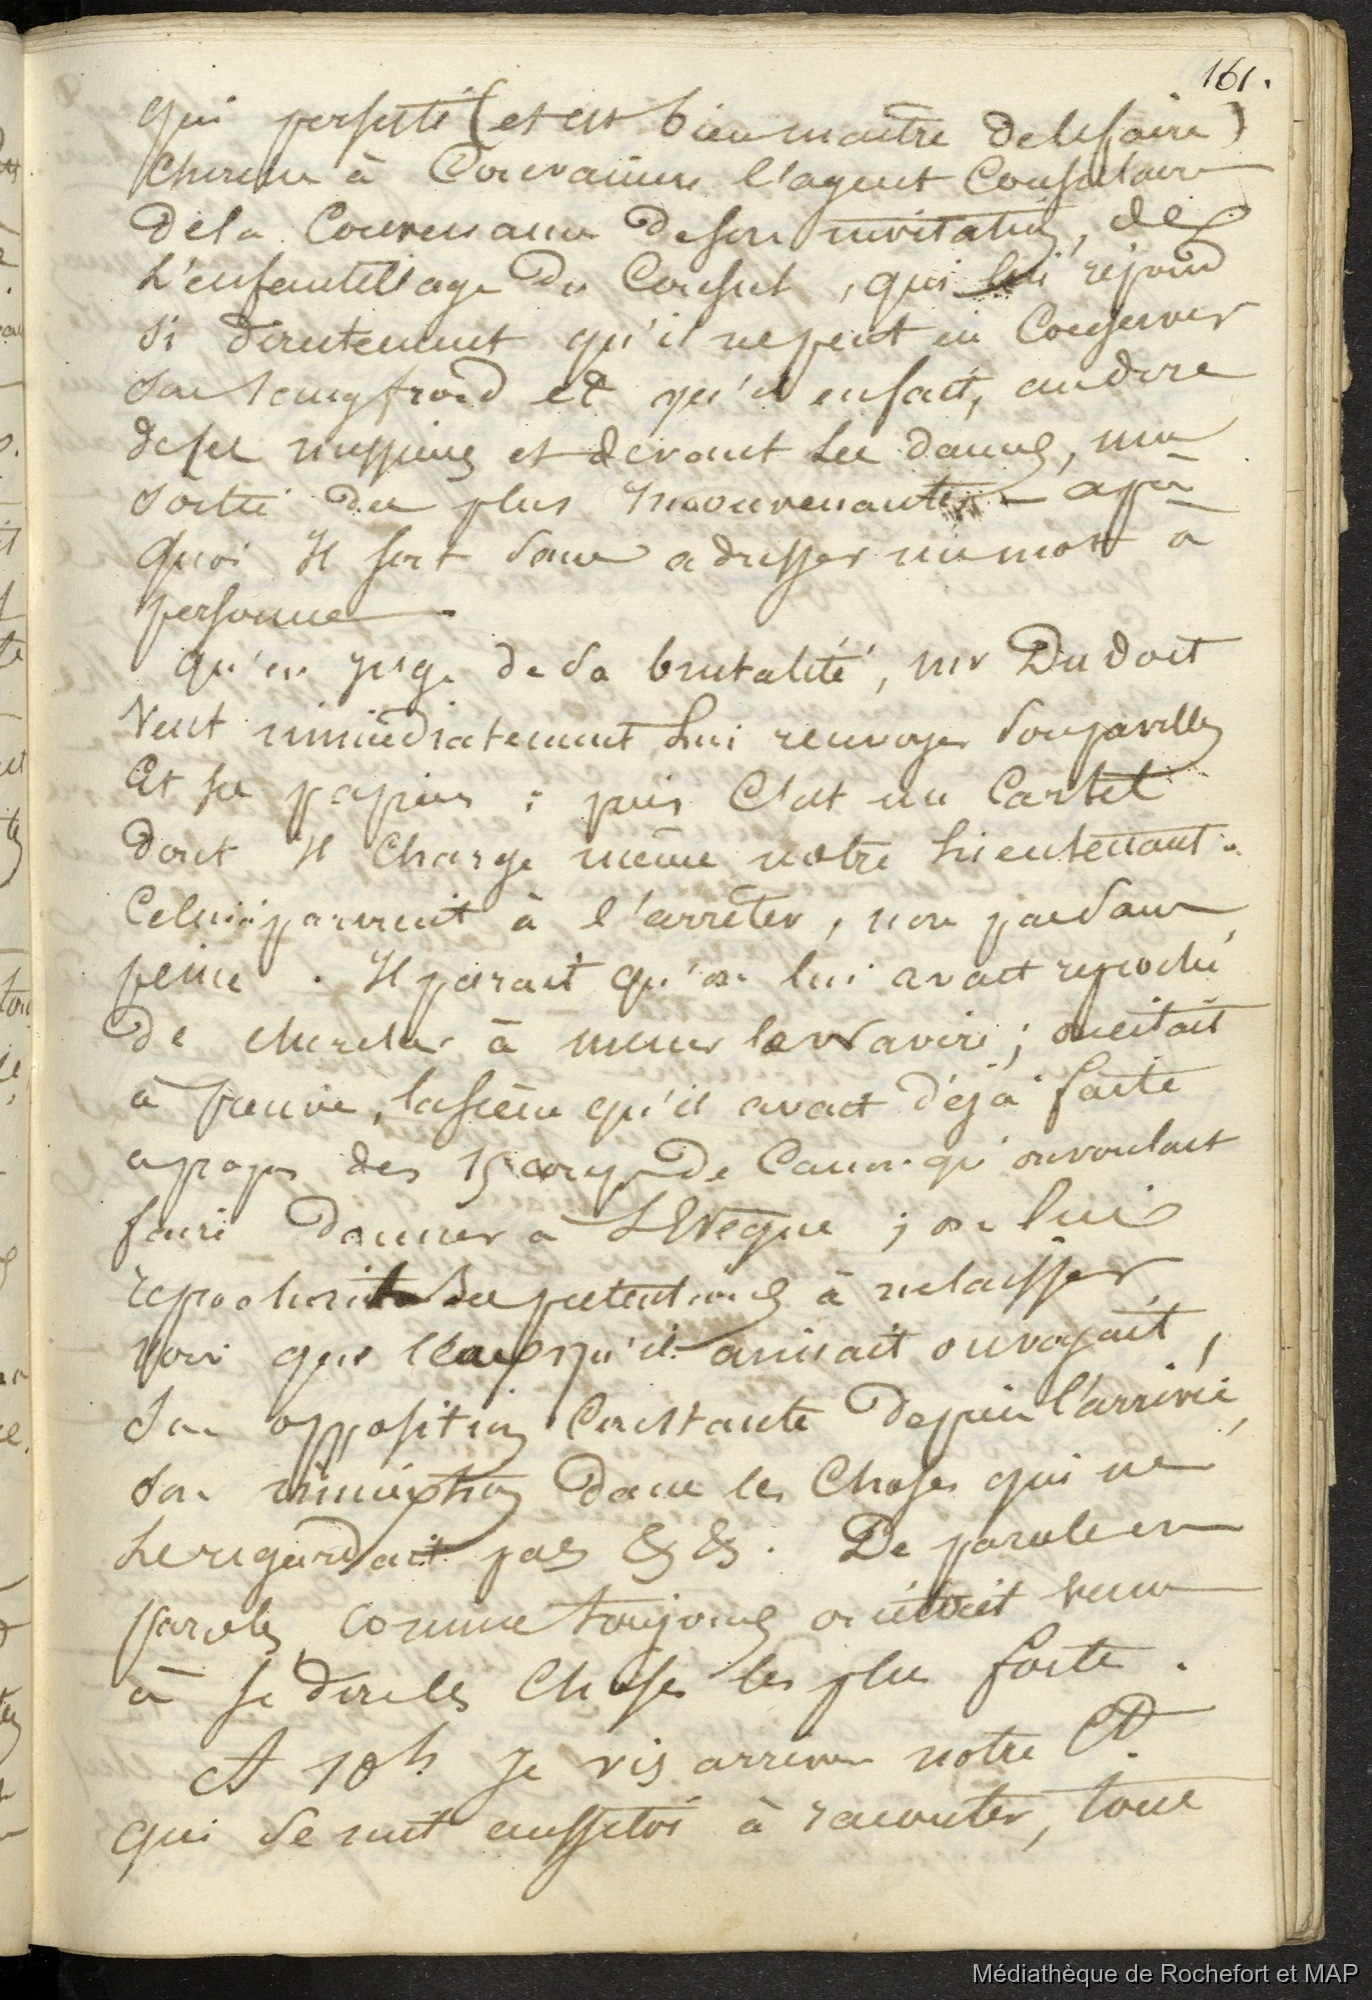 161.
qui persiste (et est bien maître de le faire)
cherche à Convaincre l'agent Consulaire
de la Convenance de son invitation, de
L'enfantillage du Consul, qui lui répond
si durement qu'il ne peut en Conserver
son sang froid et qu'il en fait, au dire
de ses messieurs et devant les dames, une
sortie des plus inconvenantes — après
quoi Il sort sans adresser un mot à
personne —
qu'on juge de sa brutalité, mr Dudoit
veut immédiatement Lui renvoyer
Et ses papiers ; puis C'est un Cartel
dont Il Charge même notre Lieutenant.
Celui-ci parvint à l'arrêter, non pas sans
peine. Il parait qu'on lui avait reproché
de chercher à mener le Navire ; on citait
à preuve, la scène qu'il avait déjà faite
a propos des 15 coups de Canon qu'on voulait
faire donner à L'Evêque ; on lui
reprochait ses prétentions à ne laisser
voir que ceux qu'il amenait ou voyait,
son opposition Constante depuis l'arrivée,
son immixtion dans les Choses qui ne
Le regardait pas &c &c. De parole en
parole, comme toujours on était venu
à se dire les Choses les plus fortes.
A 10h je vis arriver notre Ct
qui se mit aussitôt à raconter, tous
Médiathèque de Rochefort et MAP